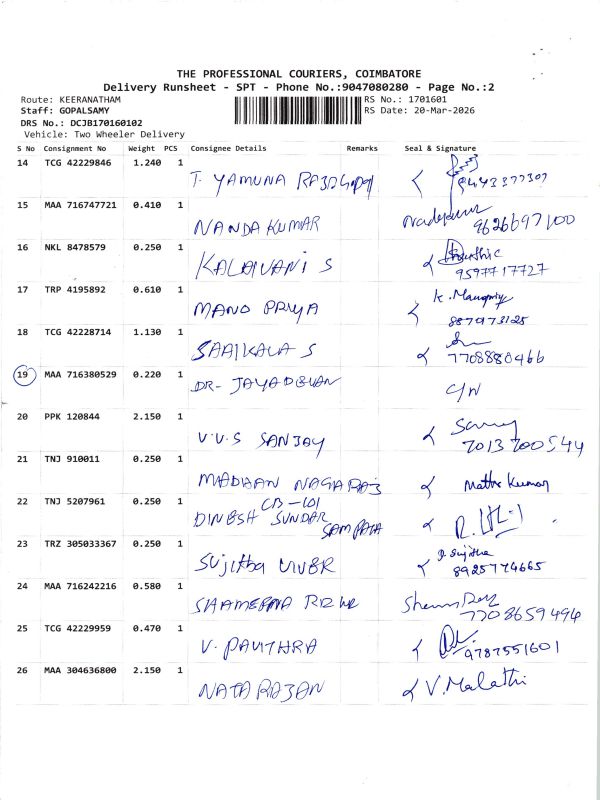 THE PROFESSIONAL COURIERS, COIMBATORE
Delivery Runsheet - SPT - Phone No.:9047080280 - Page No.:2
Route: KEERANATHAM
RS No.: 1701601
Staff: GOPALSAMY
RS Date: 20-Mar-2026
DRS No.: DCJB170160102
Vehicle: Two Wheeler Delivery
S No Consignment No Weight PCS Consignee Details Remarks Seal & Signature
14 TCG 42229846 1.240 1
T. YAMUNA
15 MAA 716747721 0.410 1
NANDA KUMAR 9626697100
16 NKL 8478579 0.250 1
KALAIVANI S
9597717727
17 TRP 4195892 0.610 1
MANO PRIYA
18 TCG 42228714 1.130 1
S
7708880466
19 MAA 716380529 0.220 1
DR- C/N
20 PPK 120844 2.150 1
V.V.S SANJAY
7013700544
21 TNJ 910011 0.250 1
MADHAN NAGARAJ
22 TNJ 5207961 0.250 1
CB-101
DINESH SUNDAR
23 TRZ 305033367 0.250 1
Sujitha
8925774665
24 MAA 716242216 0.580 1
7708659494
25 TCG 42229959 0.470 1
V. PAVITHRA
9787551601
26 MAA 304636800 2.150 1
NATARAJAN V. Malathi